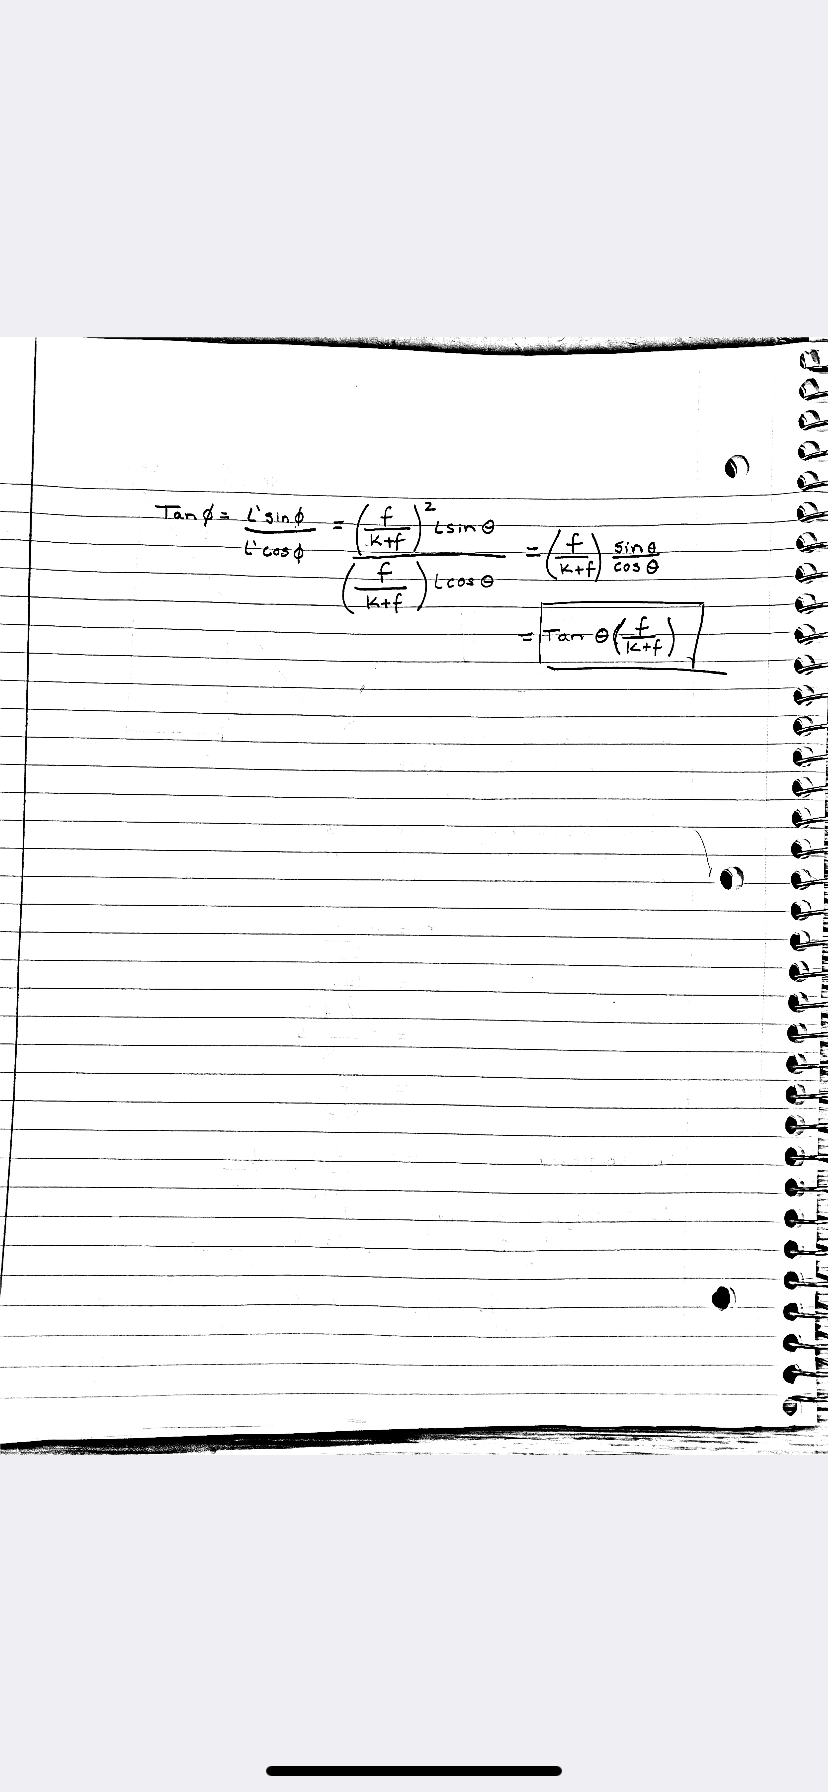 Tan ϕ = L' sin ϕ / L' cos ϕ = (f / k+f)² L sin θ / (f / k+f) L cos θ = (f / k+f) sin θ / cos θ
= Tan θ (f / k+f)